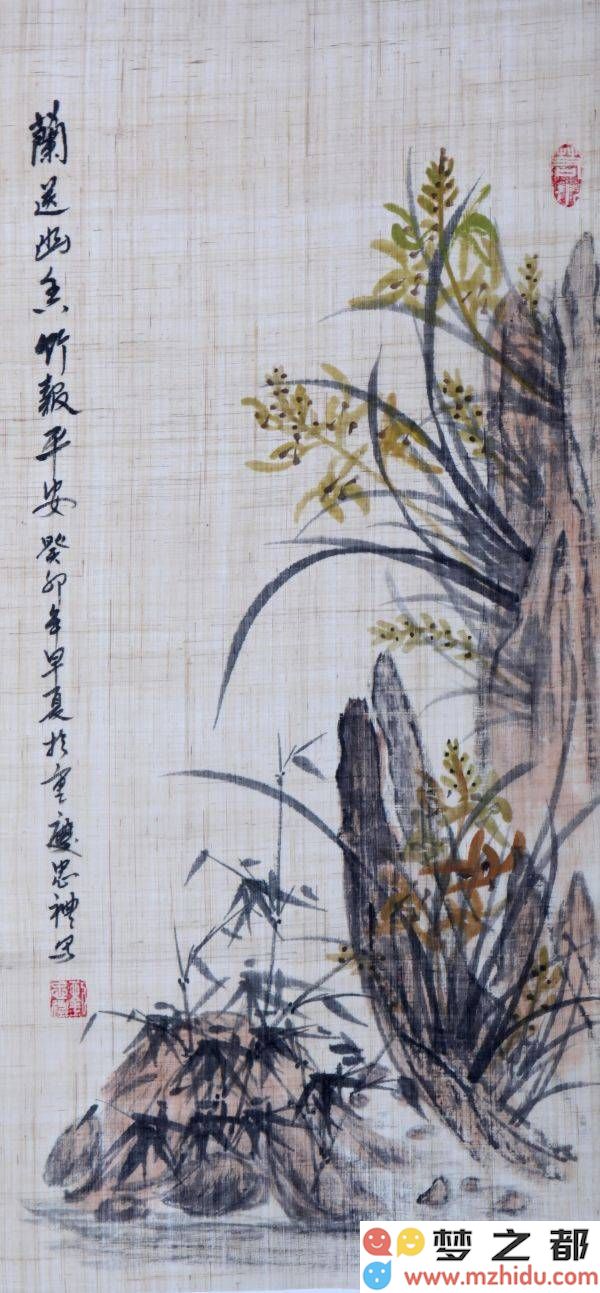 蘭送幽香竹報平安癸卯年早夏於重慶忠禮寫
梦之都
www.mzhidu.com